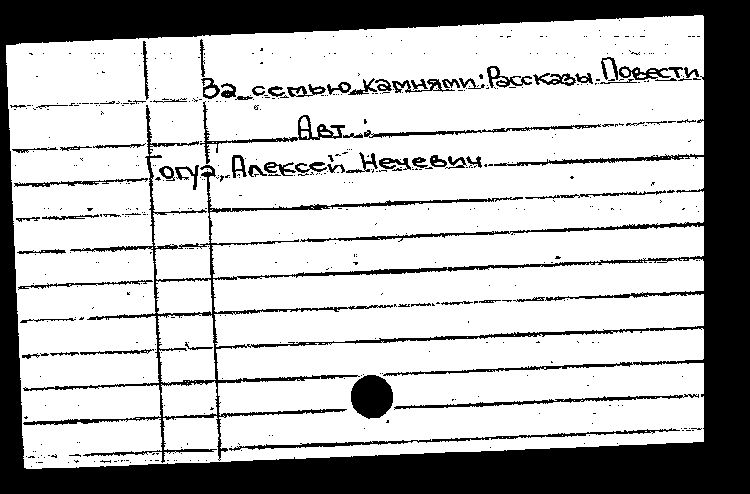 За семью камнями: Рассказы. Повести
Авт.:
Гогуа, Алексей Нечевич